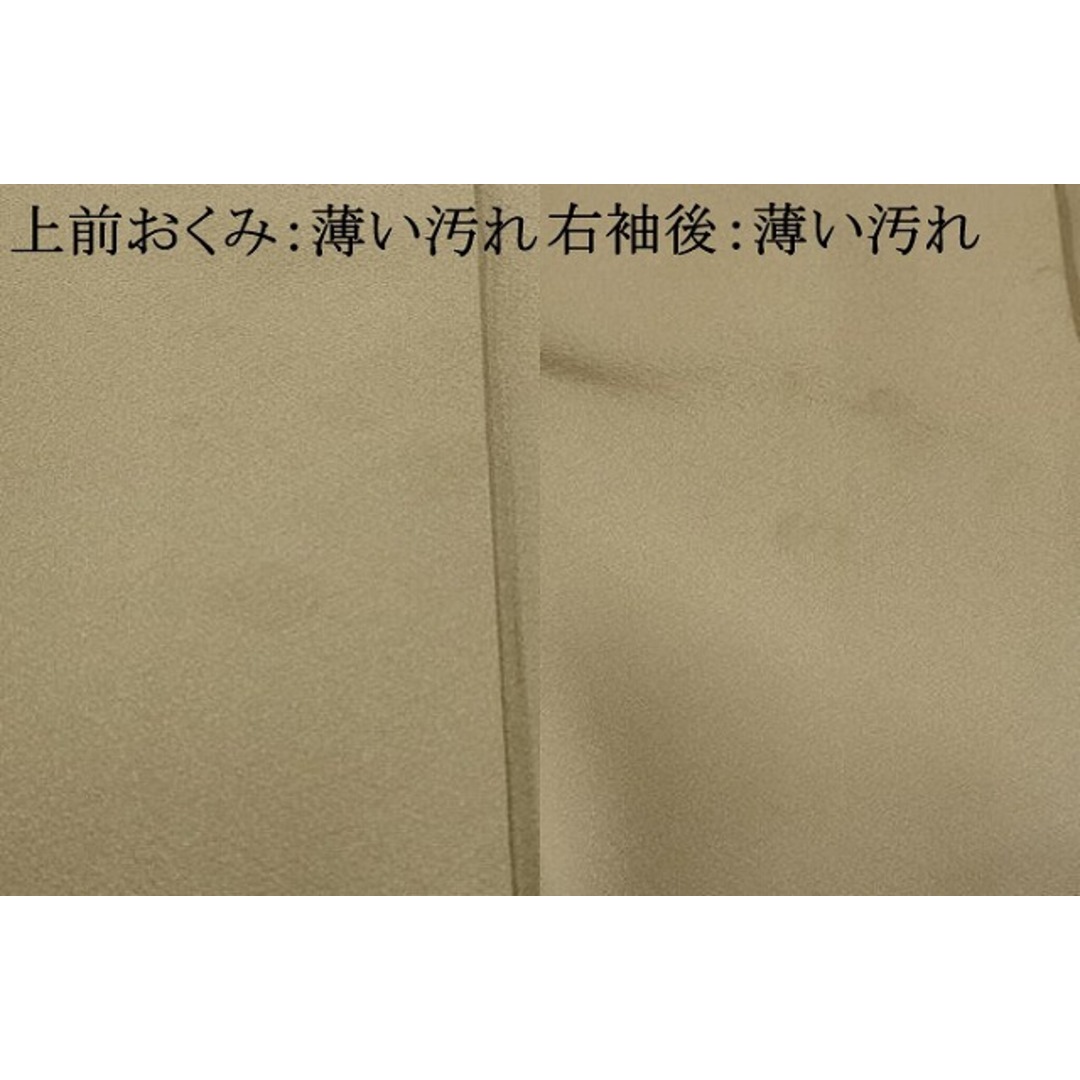 上前おくみ：薄い汚れ
右袖後：薄い汚れ